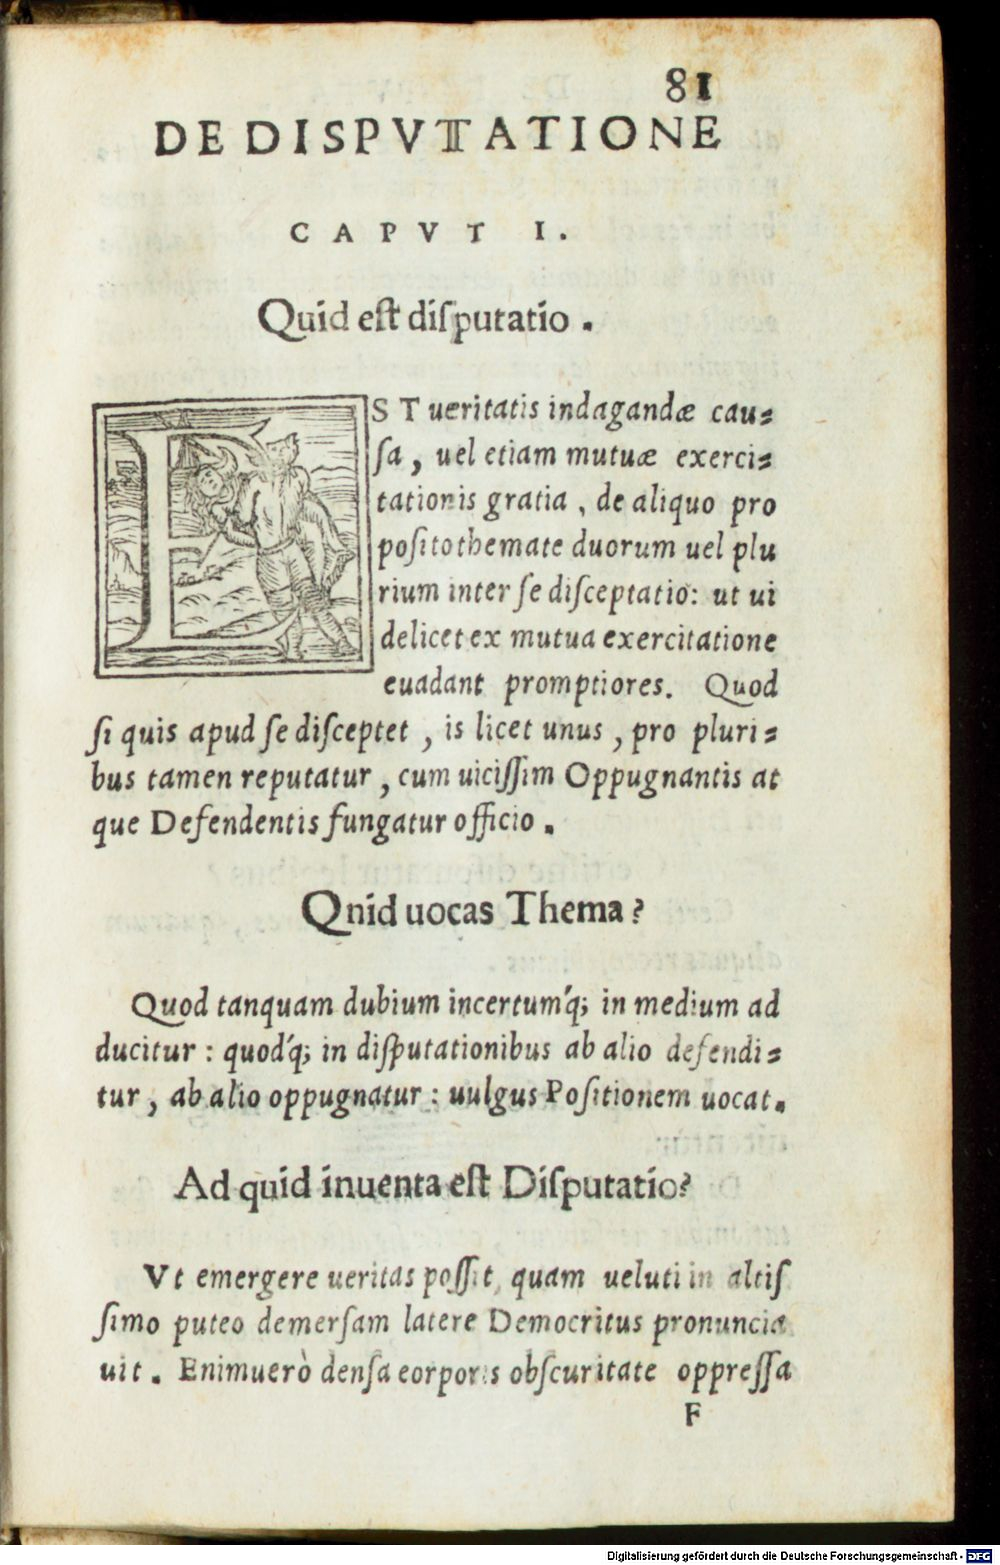 81
DE DISPVTATIONE
CAPVT I.
Quid est disputatio.
EST ueritatis indagandæ cau-
sa, uel etiam mutuæ exerci-
tationis gratia, de aliquo pro
posito themate duorum uel plu
rium inter se disceptatio: ut ui
delicet ex mutua exercitatione
euadant promptiores. Quod
si quis apud se disceptet, is licet unus, pro pluri-
bus tamen reputatur, cum uicissim Oppugnantis at
que Defendentis fungatur officio.
Qnid uocas Thema?
Quod tanquam dubium incertum'q; in medium ad
ducitur: quod'q; in disputationibus ab alio defendi-
tur, ab alio oppugnatur: uulgus Positionem uocat.
Ad quid inuenta est Disputatio?
Vt emergere ueritas possit, quam ueluti in altis
simo puteo demersam latere Democritus pronuncia
uit. Enimuerò densa eorporis obscuritate oppressa
F
Digitalisierung gefördert durch die Deutsche Forschungsgemeinschaft - DFG